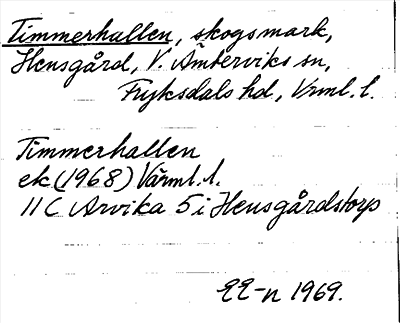 Timmerhallen, skogsmark,
Hensgård, V. Ämterviks sn,
Fryksdals hd, Vrml. l.
Timmerhallen
ek (1968) Värml. l.
11 C Arvika 5 i Hensgårdstorp
EE-n 1969.